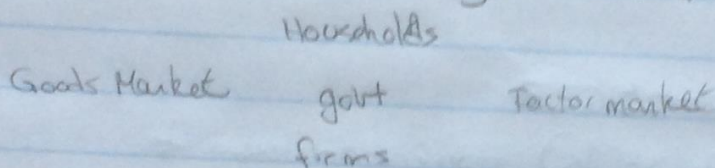 Households
Goods Market govt Factor market
firms